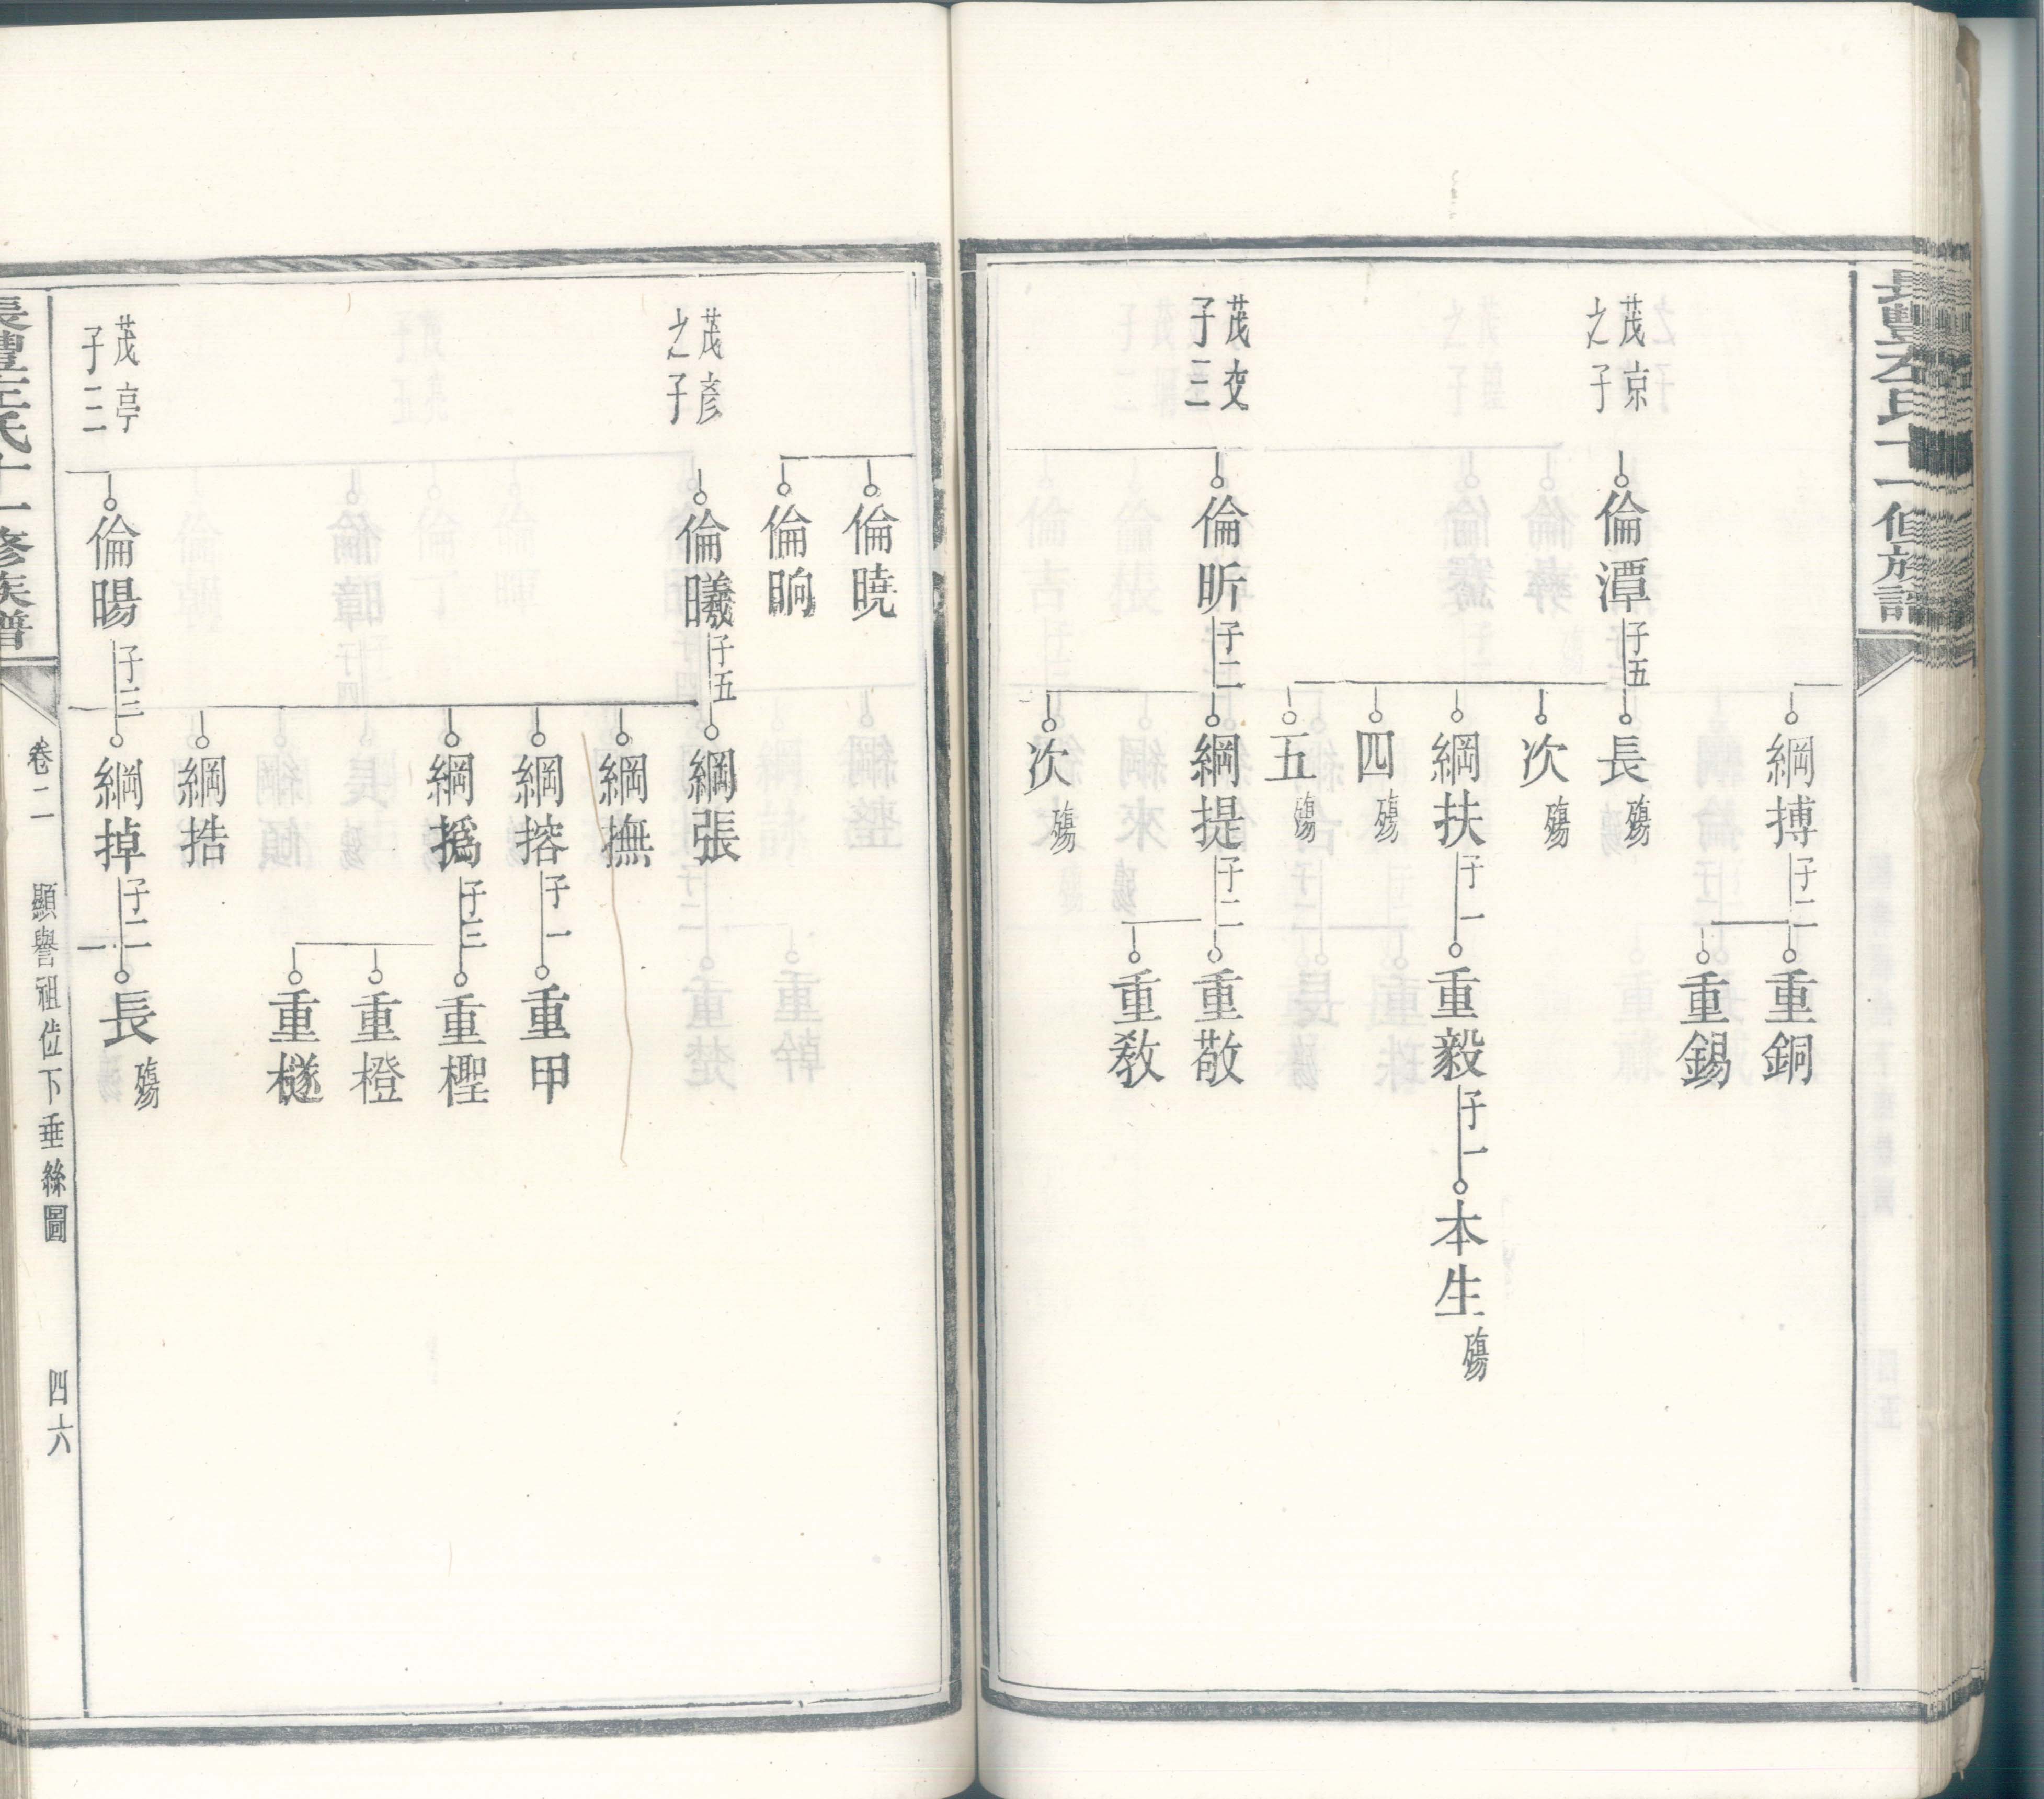 綱搏子二
重銅
重錫
茂京之子
倫潭子五
長殤
次殤
綱扶子一
重毅子一
本生殤
四殤
五殤
子三
倫昕子二
綱提子二
重敬
重教
次殤
倫曉
倫晌
茂彦之子
倫曦子五
綱張
綱撫
綱搈子一
重甲
綱撝子三
重檉
重橙
重檖
綱捁
茂亭子二
倫暘子三
綱掉子二
長殤
氏十一修族譜
卷二
顯譽祖位下垂絲圖
四六